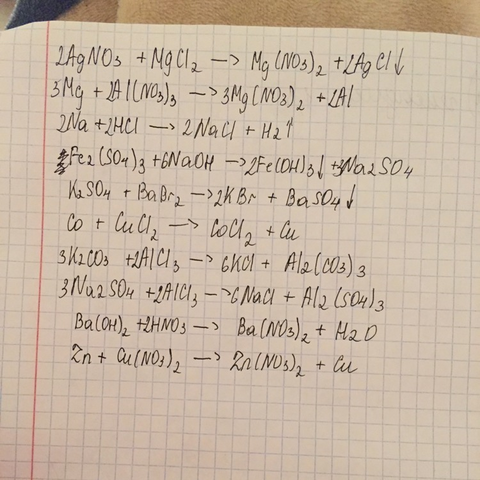 2AgNO3 + MgCl2 → Mg(NO3)2 + 2AgCl↓
3Mg + 2Al(NO3)3 → 3Mg(NO3)2 + 2Al
2Na + 2HCl → 2NaCl + H2↑
Fe2(SO4)3 + 6NaOH → 2Fe(OH)3↓ + 3Na2SO4
K2SO4 + BaBr2 → 2KBr + BaSO4↓
Co + CuCl2 → CoCl2 + Cu
3K2CO3 + 2AlCl3 → 6KCl + Al2(CO3)3
3Na2SO4 + 2AlCl3 → 6NaCl + Al2(SO4)3
Ba(OH)2 + 2HNO3 → Ba(NO3)2 + H2O
Zn + Cu(NO3)2 → Zn(NO3)2 + Cu